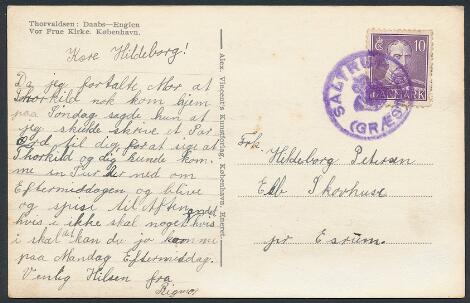 Thorvaldsen: Daabs—Englen
Vor Frue Kirke. København.
Kære Hildeborg!
Da jeg fortalte Mor at
Thorkild nok kom hjem
paa Søndag sagde hun at
jeg skulde skrive et Par
Ord til dig for at sige at
Thorkild og dig kunde kom-
me in Tur her ned om
Eftermiddagen og blive
og spise til Aften
hvis i ikke skal noget andet hvis
i skal kan du jo komme
paa Mandag Eftermiddag.
Venlig Hilsen fra
Rigmor
Alex. Vincent's Kunstforlag, København. Eneret.
10
DANMARK
SALTRUP
(GRÆST
Frk.
Hildeborg Petersen
Skovhuse
pr Esrum.